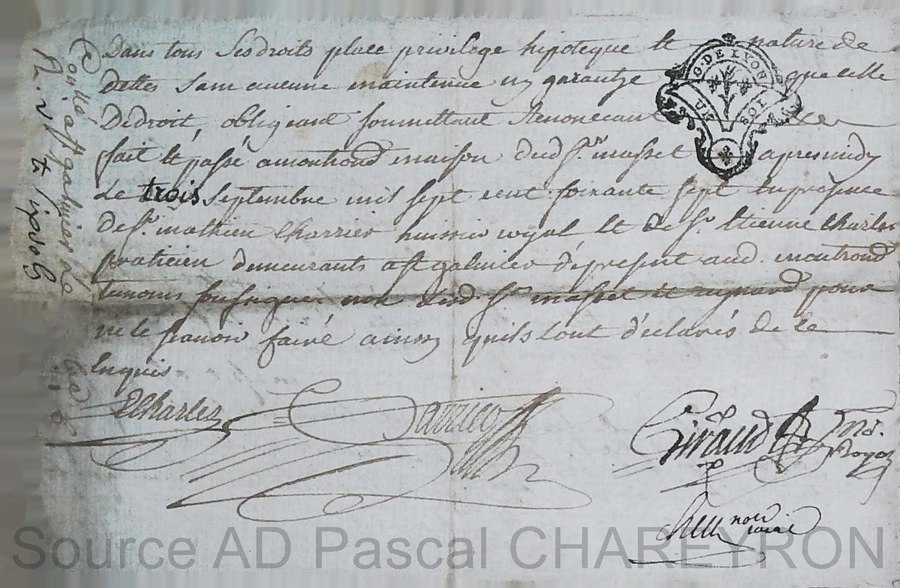 Dans tous ses droits place privilege hipoteque et nature de
dettes sans aucune maintenue ny garantye que celle
De droit, obligeant soumettant Renoncant
fait et passé a montrond maison dud Sr. masset apres midy
Le trois septembre mil sept cent soixante sept En presence
de Sr. mathieu Charrier huissier royal et de Sr. Etienne Charles
praticien demeurants a St galmier de present aud. montrond
temoins soussignes non led Sr. masset et reynaud pour
ne le scavoir faire ainsy quils l'ont déclarés de ce
Enquis
G. DE LYON
UN SOL
Controllé a St galmier Le
R. 21
ECharles
Charrier
Giraud
No.
Royal
notre
Source AD Pascal CHAREYRON